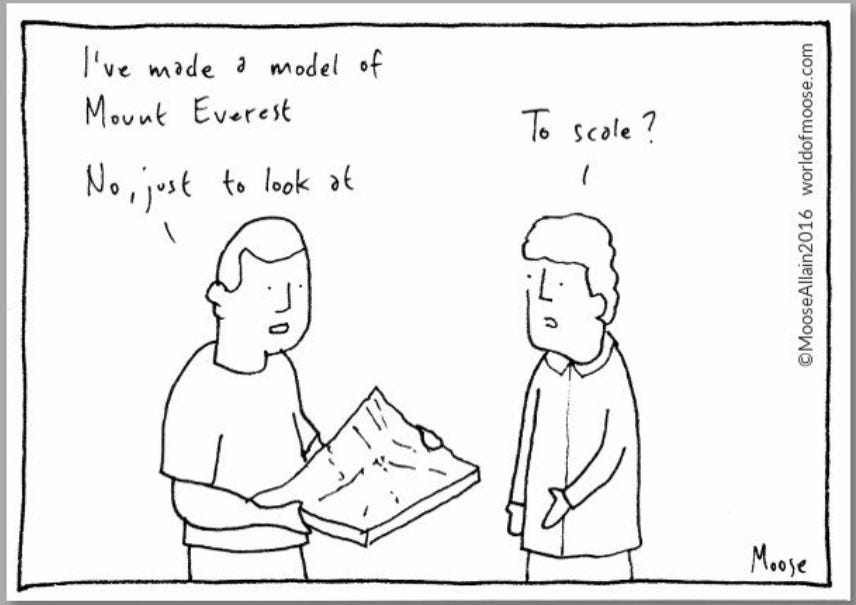 I've made a model of
Mount Everest
To scale?
No, just to look at
©MooseAllain2016 worldofmoose.com
Moose